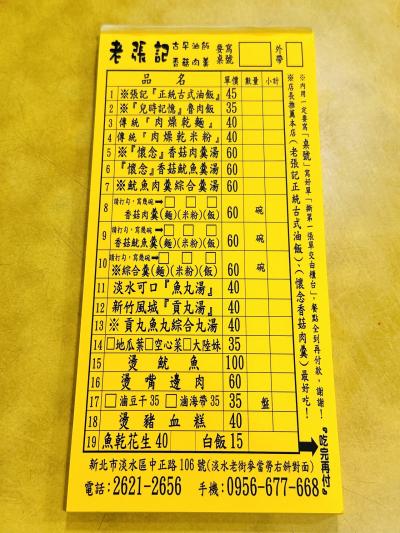 老張記 古早油飯 香菇肉羹 要寫桌號 外帶
品名 單價 數量 小計
1 ※張記『正統古式油飯』 45
2 ※『兒時記憶』魯肉飯 35
3 傳統『肉燥乾麵』 40
4 傳統『肉燥乾米粉』 40
5 ※『懷念』香菇肉羹湯 60
6 『懷念』香菇魷魚羹湯 60
7 ※魷魚肉羹綜合羹湯 60
8 請打勾,寫幾碗➡□ □ □
香菇肉羹(麵)(米粉)(飯) 60 碗
9 請打勾,寫幾碗➡□ □ □
香菇魷魚羹(麵)(米粉)(飯) 60 碗
10 請打勾,寫幾碗➡□ □ □
※綜合羹(麵)(米粉)(飯) 60 碗
11 淡水可口『魚丸湯』 40
12 新竹風城『貢丸湯』 40
13 ※貢丸魚丸綜合丸湯 40
14 □地瓜葉□空心菜□大陸妹 35
15 燙魷魚 100
16 燙嘴邊肉 60
17 □滷豆干35 □滷海帶35 35 盤
18 燙豬血糕 40
19 魚乾花生40 白飯15
※內用一定要寫「桌號」寫好單「撕第一張單交由櫃台」,餐點全到再付款,謝謝!
※店長推薦本店(老張記正統古式油飯)、(懷念香菇肉羹)最好吃!
『吃完再付』
新北市淡水區中正路106號(淡水老街麥當勞右斜對面)
電話:2621-2656 手機:0956-677-668